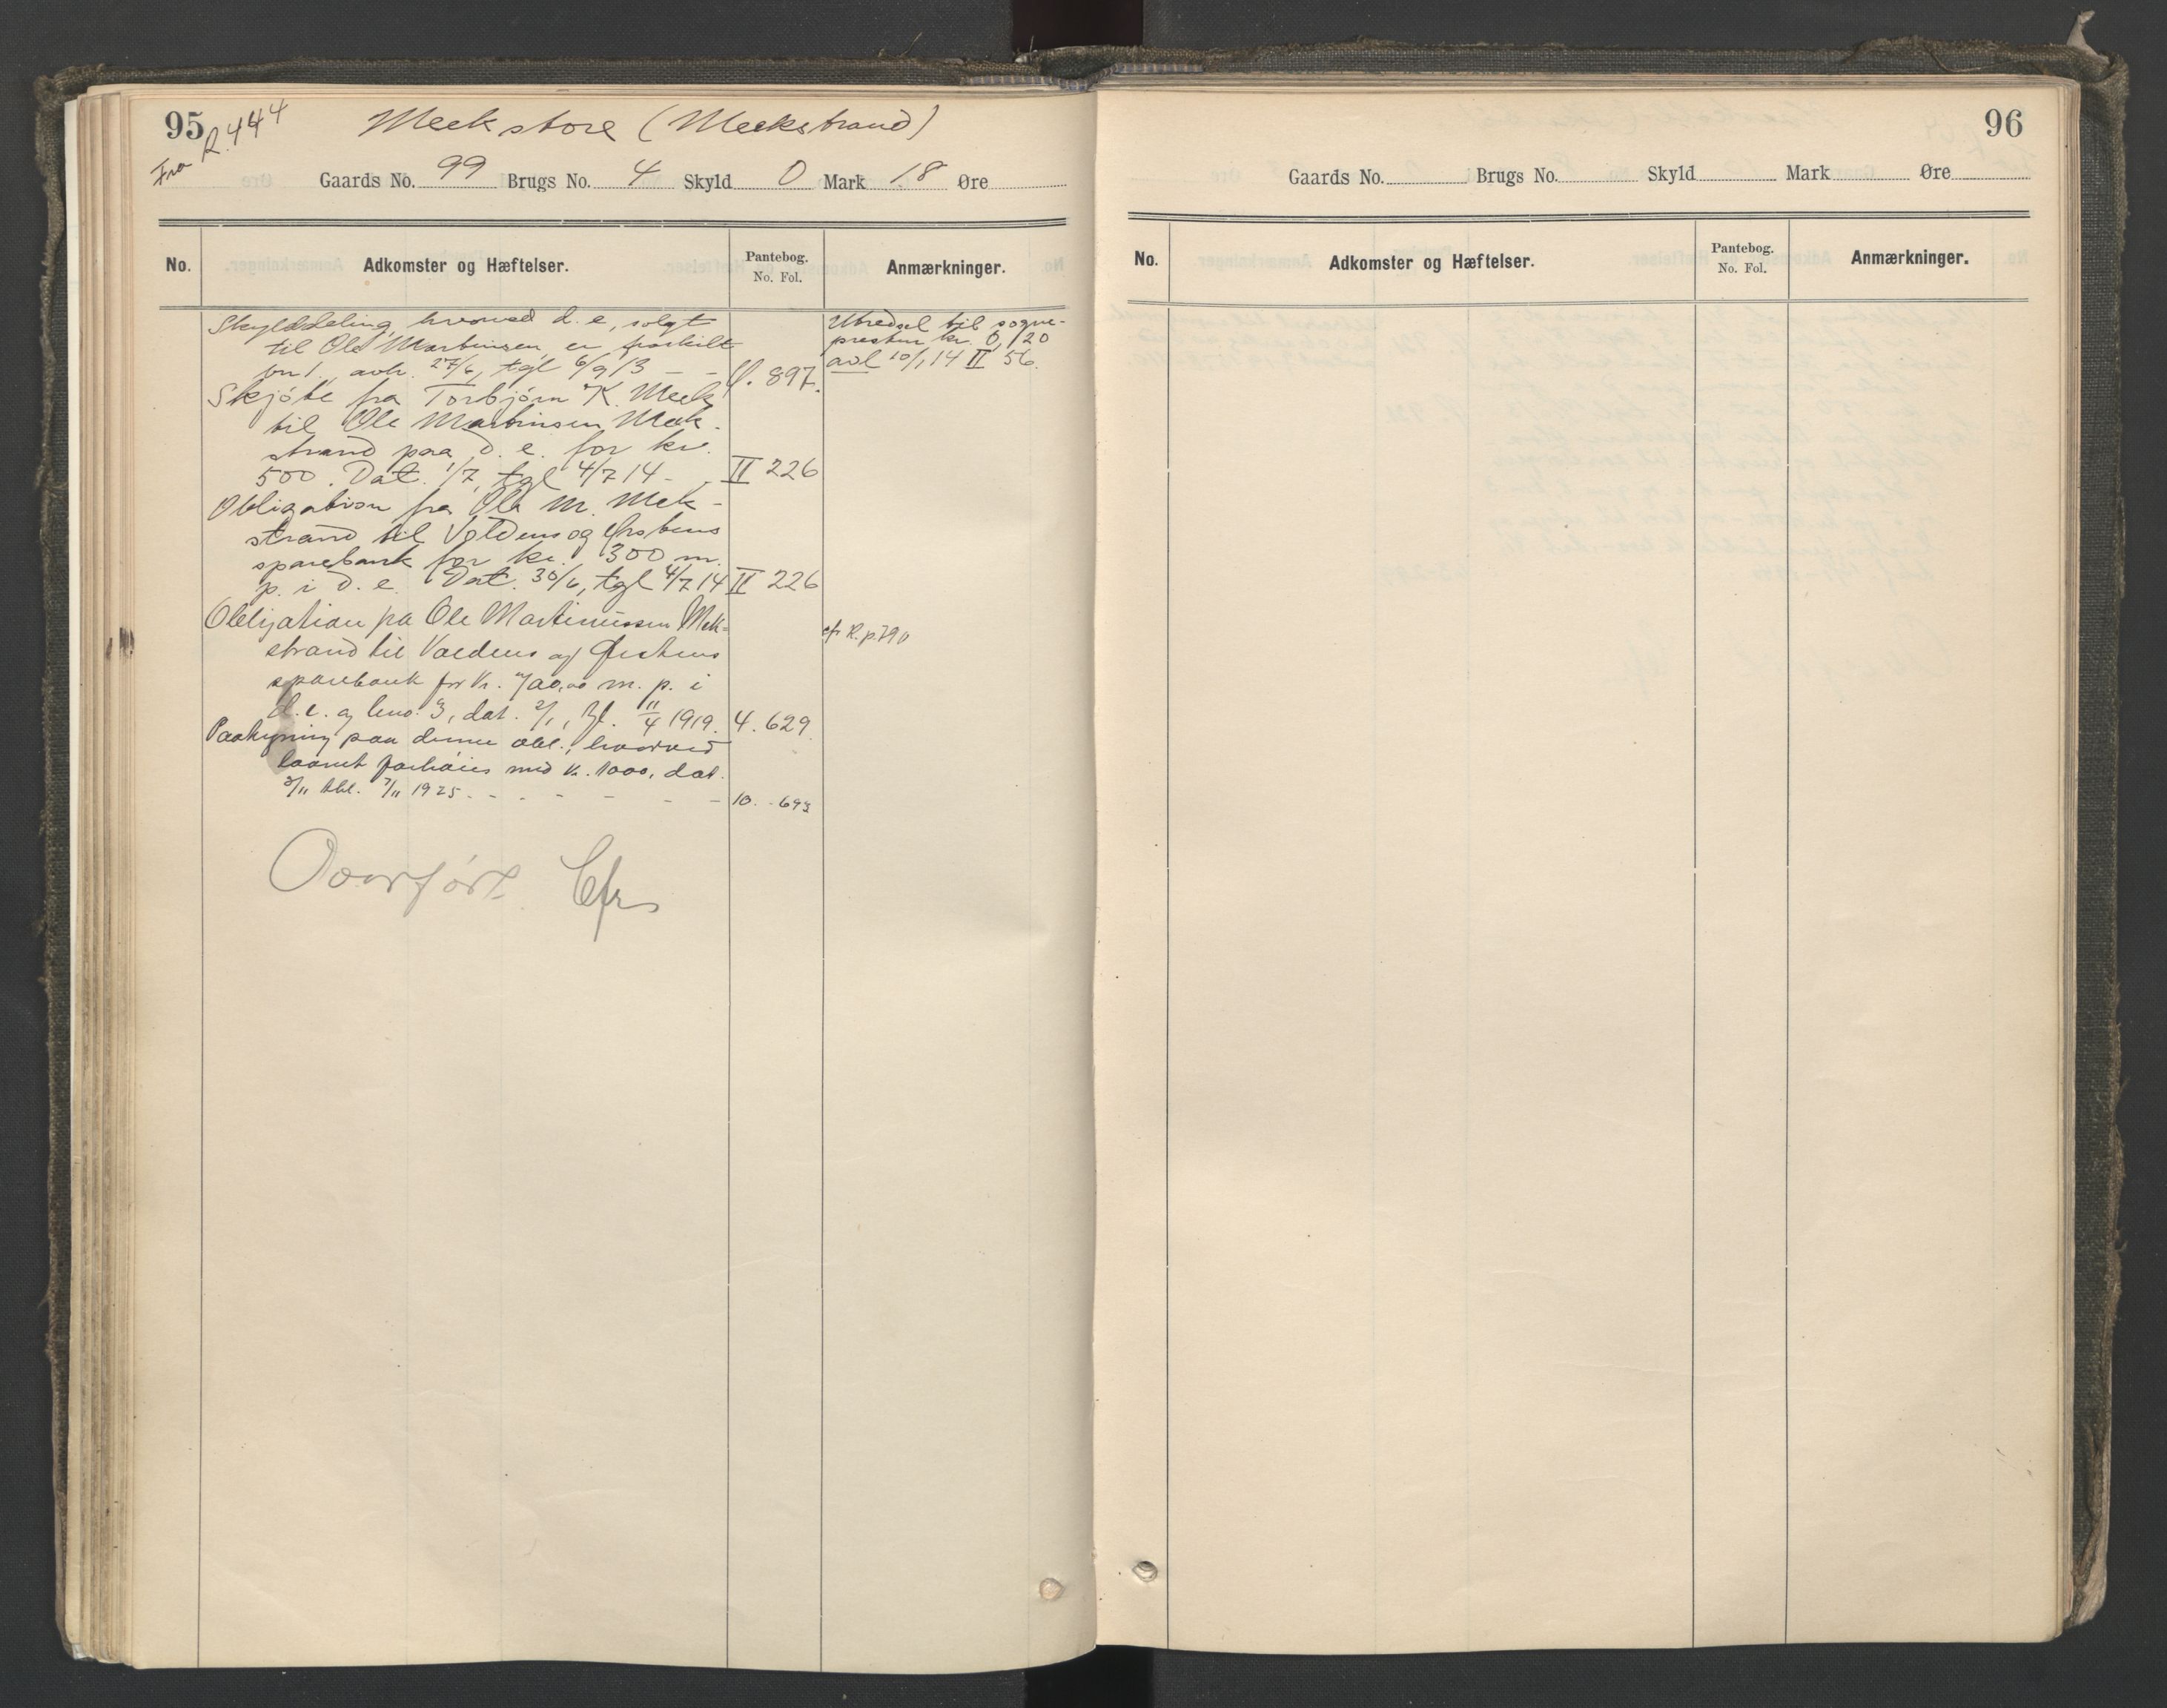 95
Fra R. 444
Meek store (Meekstrand)
Gaards No. 99 Brugs No. 4 Skyld 0 Mark 18 Øre
No. Adkomster og Hæftelser. Pantebog. No. Fol. Anmærkninger.
Skylddeling, hvorved d. e, solgt
til Ole Martinsen er fraskilt
brn 1. avh. 27/6, tgl 6/9 13 — — 897.
Skjöte fra Torbjörn K. Meek
til Ole Martinsen Mek-
strand paa d. e. for kr.
500. Dat. 1/7, tgl 4/7 14 - II 226
Obligation fra Ole M. Mek-
strand til Voldens og Ørstens
sparebank for kr. 300 m.
p. i d. e. Dat. 30/6, tgl 4/7 14 II 226
Obligation fra Ole Martinussen Mek-
strand til Voldens og Ørstens
sparebank for kr. 700,00 m. p. i
d. e. og bno. 3, dat. 2/1, tgl. 11/4 1919. 4. 629
Paategning paa denne obl., hvorved
laanet forhöies med kr. 1000, dat.
3/11 tbl. 7/11 1925 - - - - - - - 10. - 693
Utredsel til sogne-
presten kr. 0,120
avl 10/1 14 II 56.
cfr R. p. 790
Overført Cfr
96
Gaards No. Brugs No. Skyld Mark Øre
No. Adkomster og Hæftelser. Pantebog. No. Fol. Anmærkninger.